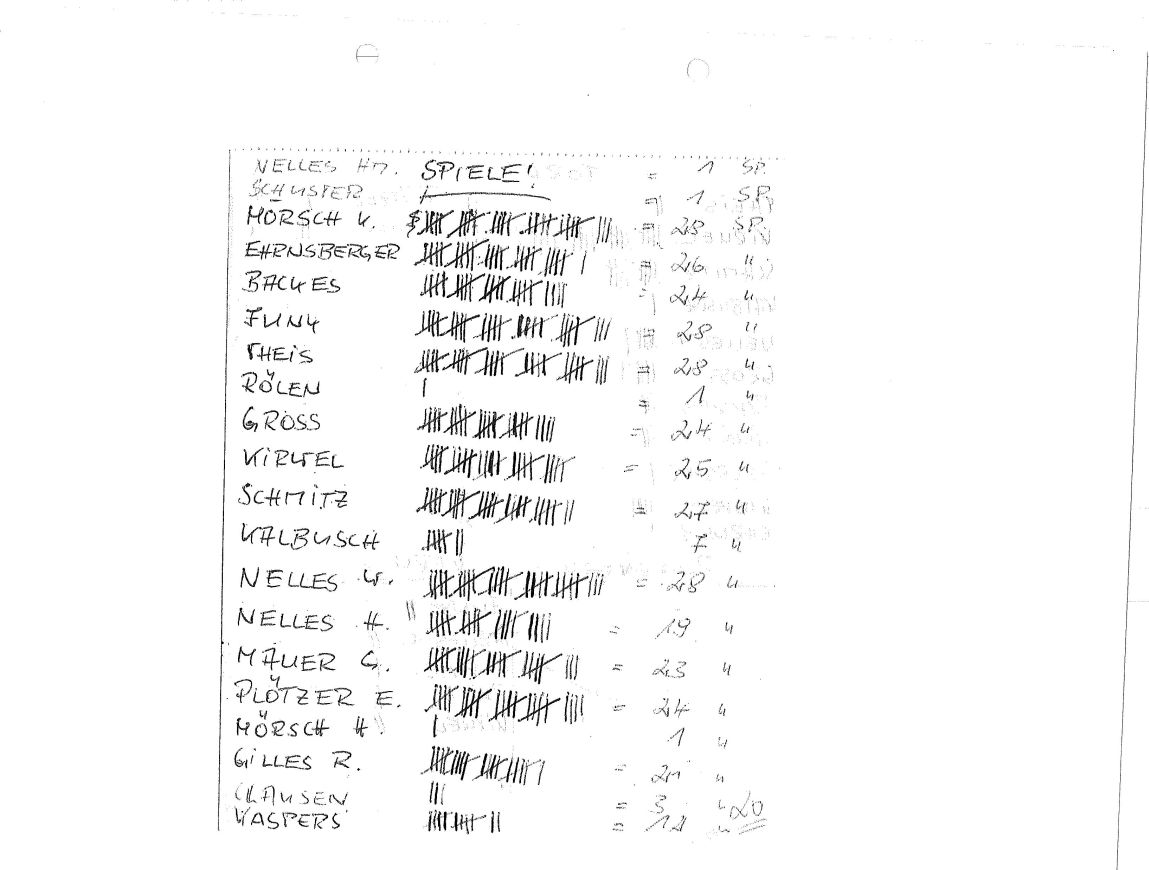 NELLES HM. SPIELE! = 1 SP.
SCHUSTER I = 1 SP.
MÖRSCH K. = 28 SP.
EHRNSBERGER = 26 "
BACKES = 24 "
JUNK = 28 "
THEIS = 28 "
RÖLEN I = 1 "
GROSS = 24 "
KIRWEL = 25 "
SCHMITZ = 27 "
KALBUSCH 7 "
NELLES W. = 28 "
NELLES H. = 19 "
MÄUER G. = 23 "
PLÖTZER E. = 24 "
MÖRSCH H. I 1 "
GILLES R. = 21 "
CLAUSEN III = 3 "
KASPERS = 12 " 20